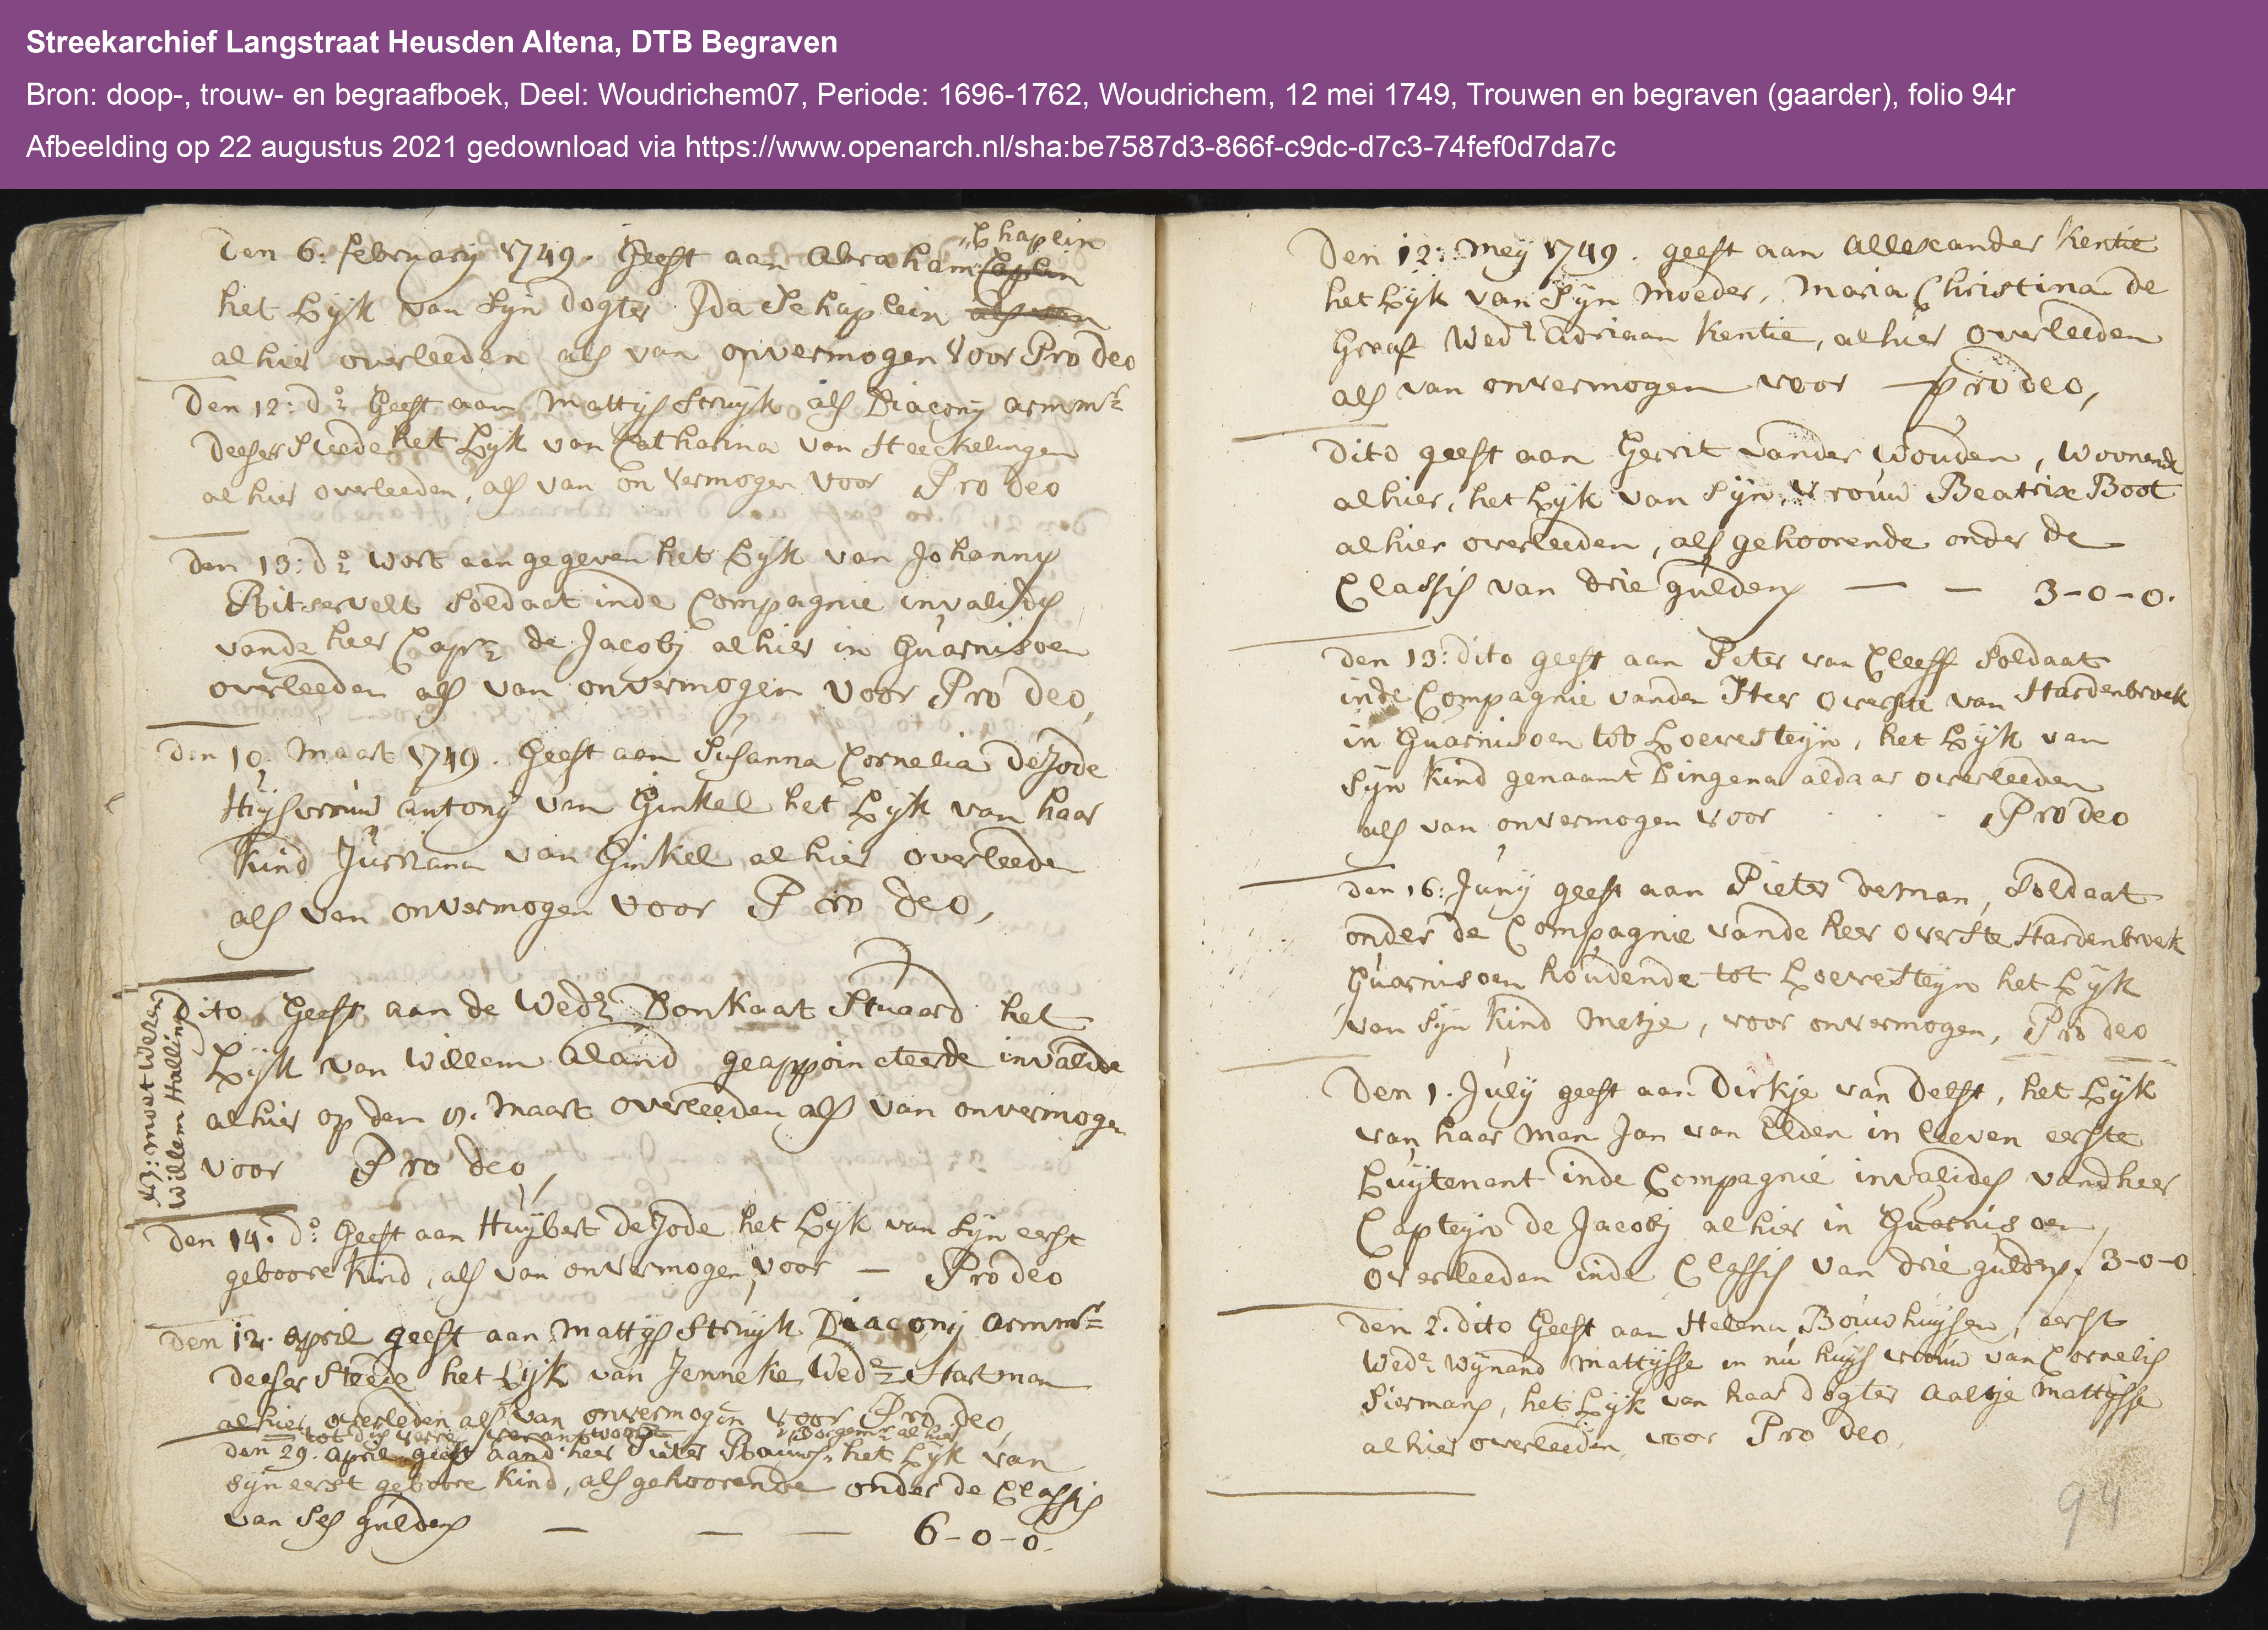 Streekarchief Langstraat Heusden Altena, DTB Begraven
Bron: doop-, trouw- en begraafboek, Deel: Woudrichem07, Periode: 1696-1762, Woudrichem, 12 mei 1749, Trouwen en begraven (gaarder), folio 94r
Afbeelding op 22 augustus 2021 gedownload via https://www.openarch.nl/sha:be7587d3-866f-c9dc-d7c3-74fef0d7da7c
Chaplein
Den 6: february 1749. Geeft aan Abraham Caplein
het Lijk van Sijn dogter Ida Schaplein als van
alhier overleeden als van onvermogen Voor Pro deo
Den 12: do Geeft aan Mattijs Struijk als Diaconij armmr
deeser Steede het Lijk van Catharina van Heeckelingen
alhier overleeden, als van on vermogen voor Pro Deo
Den 13: do wort aangegeven het Lijk van Johannis
Ritservelt Soldaat inde Compagnie invalides
vande heer Capn de Jacobij alhier in Guarnisoen
overleeden als van onvermogen voor Pro deo,
Den 10. Maart 1749. Geeft aan Susanna Cornelia De Jode
Huijsvrouw antonij van Ginkel het Lijk van haar
kind Jurriana van Ginkel alhier overleede
als van onvermogen voor Pro deo,
NB: moet Wesen
Willem Halling
Dito Geeft aan de Wedr Bonkaat Stuaard het
Lijk van Willem Aland geappoincteerde invalide
alhier op den 9. Maart overleeden als van onvermogen
voor Pro deo,
Den 14. do Geeft aan Huijbert de Jode het Lijk van Sijn eerst
geboore kind, als van onvermogen, voor — Pro deo
Den 12. april geeft aan Mattijs Struijk Diaconij armmr
deeser Steede het Lijk van Jenneke Wedr Hartman
alhier overleden als van onvermogen voor Pro deo,
tot dus verre verantwoort
Borgemr alhier
den 29. april geeft aan d' heer Pieter het Lijk van
Sijn eerst geboore kind, als gehoorende onder de Classis
van Ses guldens — — — 6-0-0.
Den 12: Meij 1749. geeft aan Allexander Kentie
het Lijk van Sijn Moeder, Maria Christina de
Graaf Wedr Adriaan Kentie, alhier overleeden
als van onvermogen voor — pro deo,
Dito geeft aan Gerrit vander Wouden, woonende
alhier, het Lijk van Sijn vrouw Beatrix Boot
alhier overleeden, als gehoorende onder de
Classis van drie guldens — — 3-0-0.
den 13: dito geeft aan Peter van Cleeff Soldaat
inde Compagnie vanden Heer Overste van Hardenbroek
in Guarnisoen tot Loevesteijn, het Lijk van
Sijn kind genaamt Dingena aldaar overleeden
als van onvermogen voor . . . Pro deo
den 16: Junij geeft aan Pieter deman, Soldaat
onder de Compagnie vande heer overste Hardenbroek
Guarnisoen houdende tot Loevesteijn het Lijk
van Sijn kind Metje, voor onvermogen, Pro deo
Den 1. Julij geeft aan Dirkje van Delft, het Lijk
van haar man Jan van Elden in leeven eerste
Luijtenant inde Compagnie invalides vand heer
Capteijn de Jacobij alhier in Guarnisoen,
overleeden inde Classis van drie guldens. 3-0-0
den 2. dito Geeft aan Helena Bouwhuijsen, eerst
Wedr Wijnand Mattijsse en nu huijs vrouw van Cornelis
Siermans, het Lijk van haar dogter Aaltje Mattijsse
alhier overleeden voor Pro Deo.
94